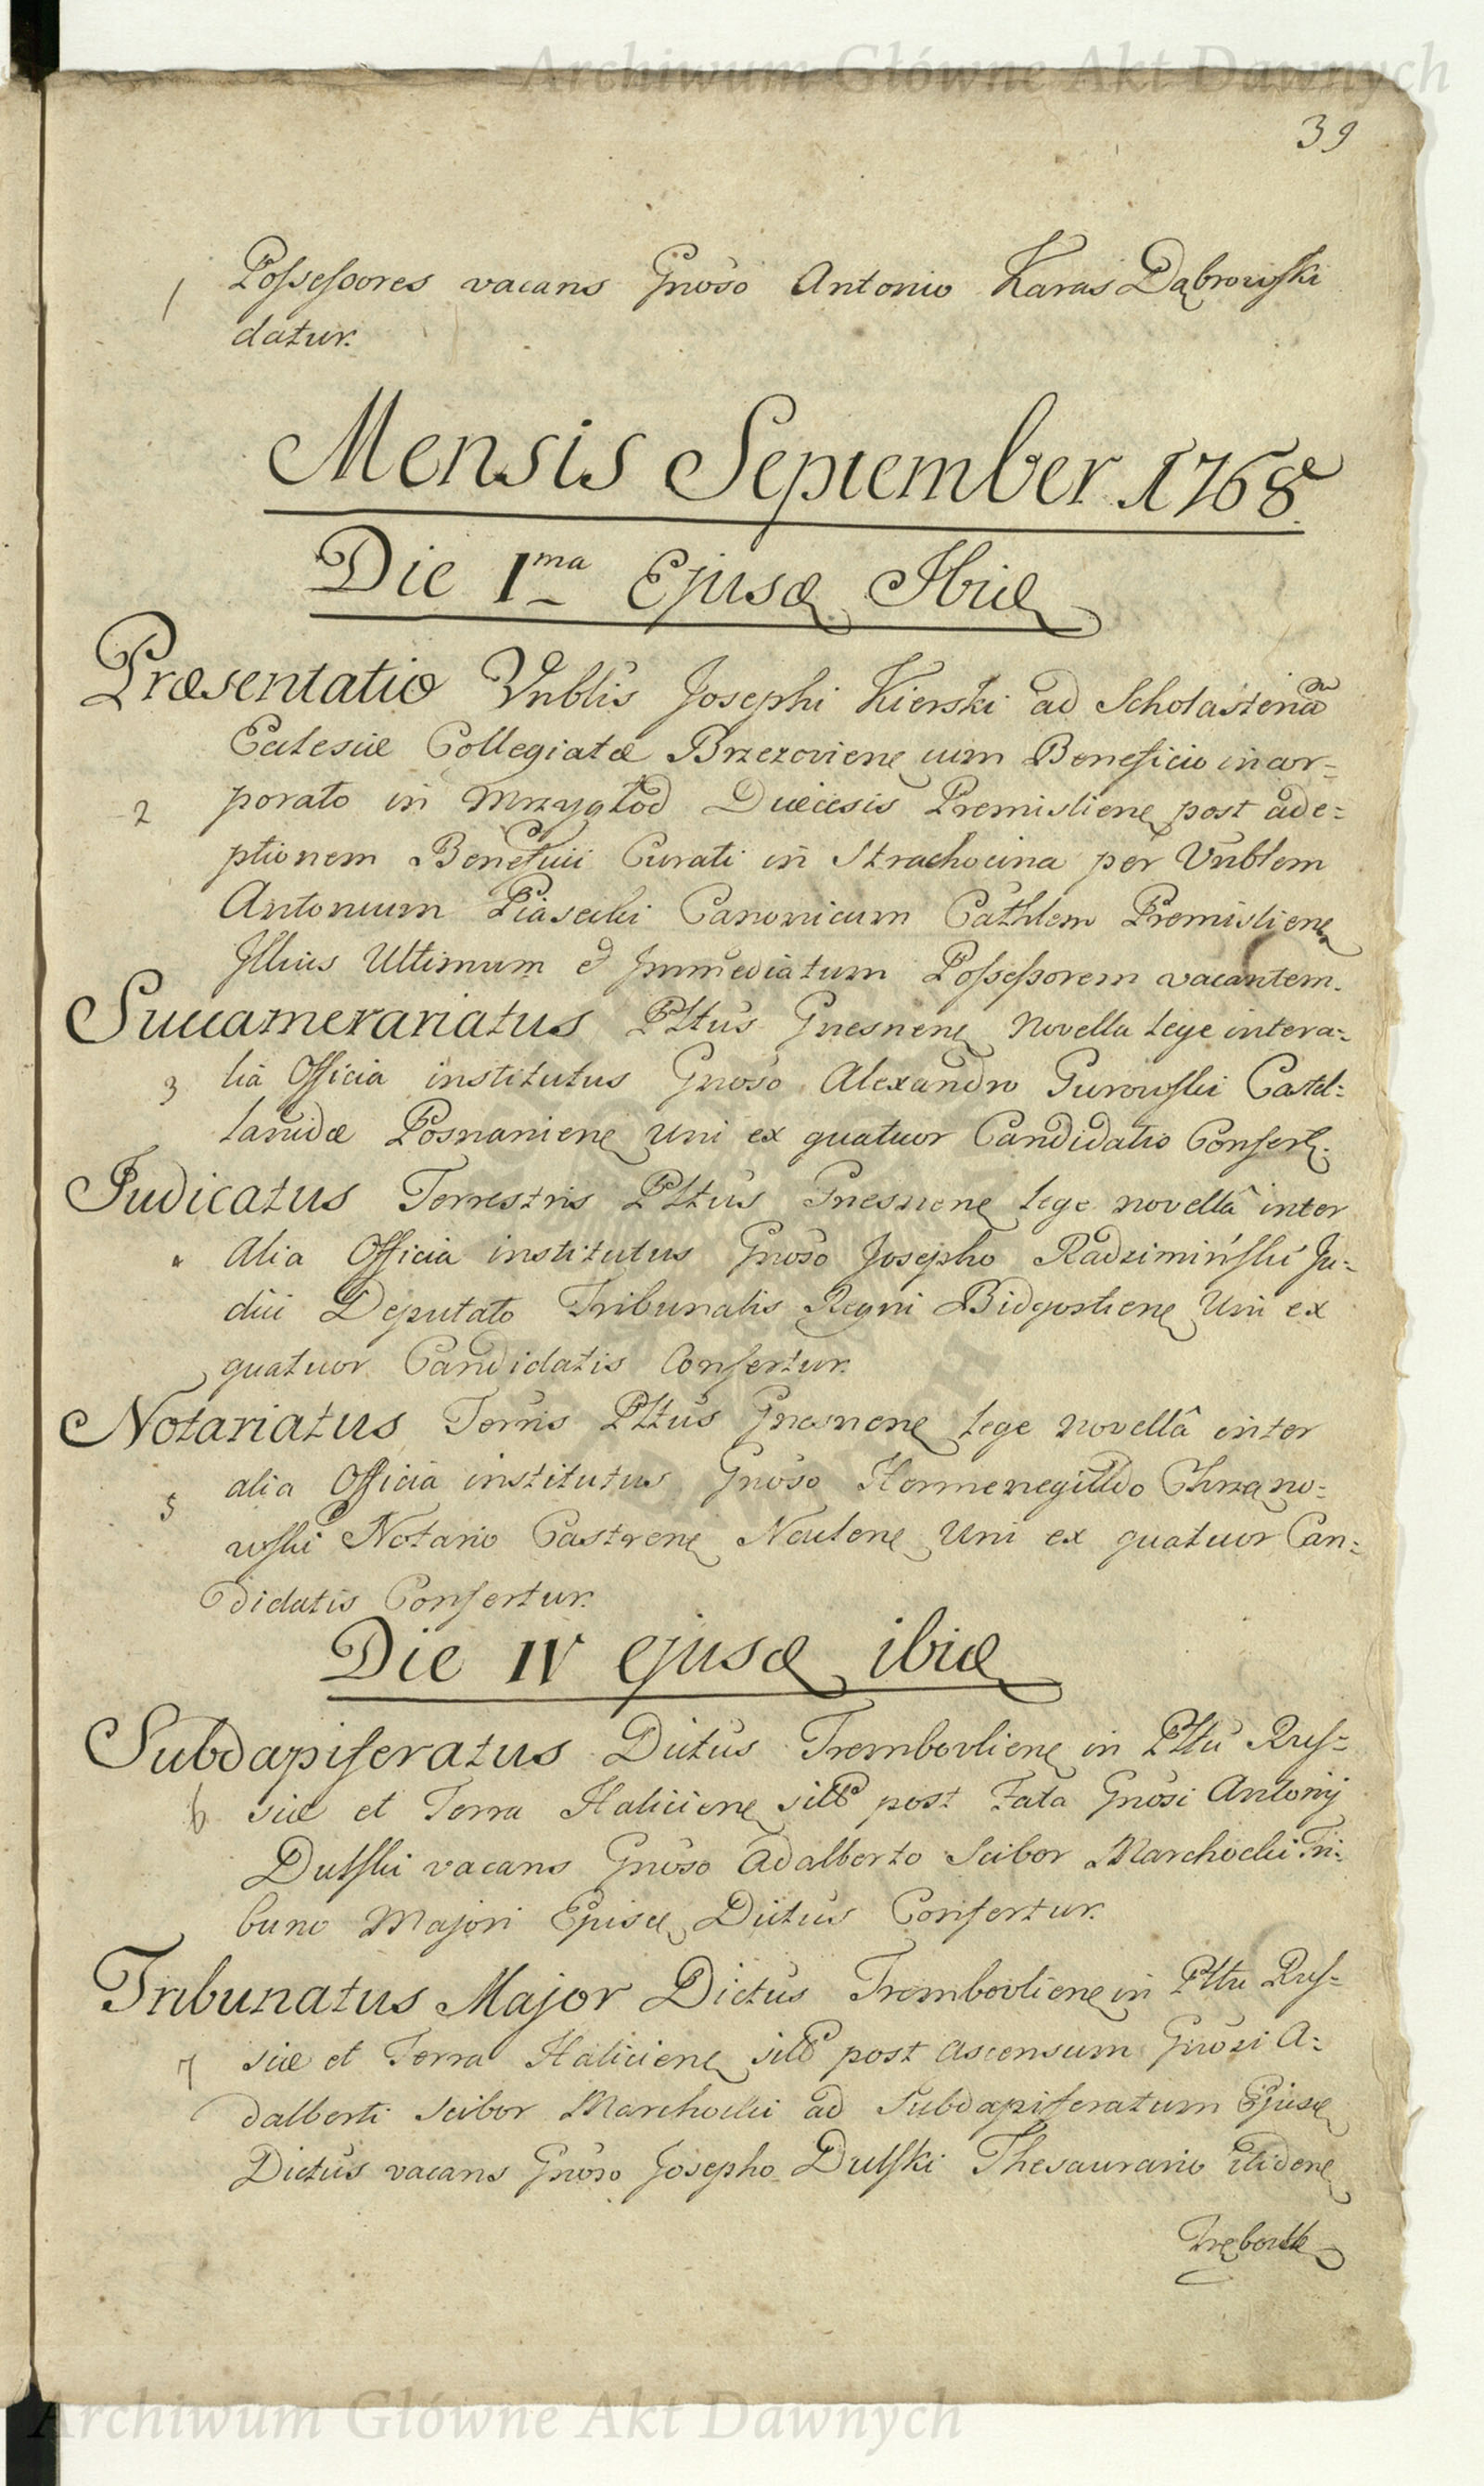 Archiwum Główne Akt Dawnych
39
1 Possessores vacans Gnoso Antonio Karas Dąbrowski
datur.
Mensis September 1768
Die 1ma Ejusd Ibid
Præsentatio Vnblis Josephi Kierski ad Scholasteriam
Eclesiæ Collegiatæ Brzezoviene cum Beneficio incor=
2 porato in Mrzygłod Diæcesis Premisliene post ade=
ptionem Beneficii Curati in Strachocina per Vnblem
Antonium Piasecki Canonicum Cathlem Premisliene
Illius Ultimum et Immediatum Possessorem vacantem.
Succamerariatus Pltus Gnesnene novella lege intera=
3 lia Officia institutus Gnoso Alexandro Gurowski Castel=
lanidæ Posnaniene uni ex quatuor Candidatis Confert.
Judicatus Terrestris Pltus Gnesnene lege novellâ inter
4 alia Officia institutus Gnoso Josepho Radzimiński Ju=
dici Deputato Tribunalis Regni Bidgostiene Uni ex
quatuor Candidatis Confertur.
Notariatus Terris Pltus Gnesnene lege novellâ inter
5 alia Officia institutus Gnoso Hermenegildo Chrzano=
wski Notario Castrene Naklene Uni ex quatuor Can=
didatis Confertur.
Die IV ejusd ibid
Subdapiferatus Dictus Trembovliene in Pltu Rus=
6 siæ et Terra Haliciene sito post Fata Gnosi Antonij
Dulski vacans Gnoso Adalberto Scibor Marchocki Tri=
buno Majori Ejusd Dictus Confertur.
Tribunatus Major Dictus Trembovliene in Pltu Rus=
7 siæ et Terra Haliciene sito post ascensum Gnosi A=
dalberti Scibor Marchocki ad Subdapiferatum Ejusd
Dictus vacans Gnoso Josepho Dulski Thesaurario itidene
Archiwum Główne Akt Dawnych